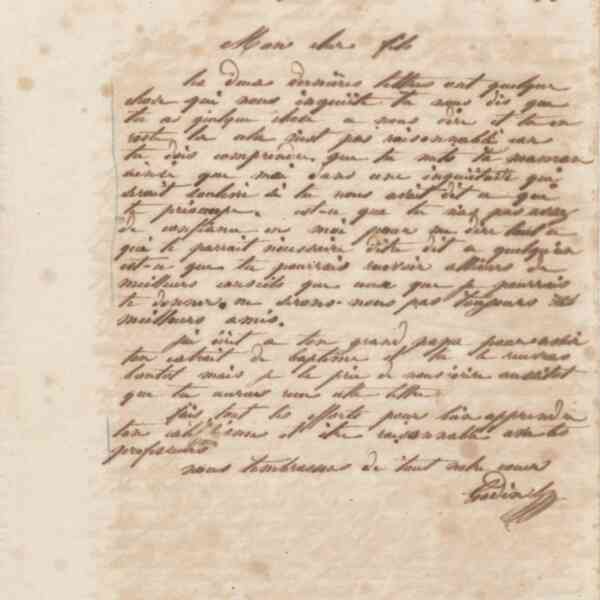 Mon cher fils
tes deux dernières lettres ont quelque
chose qui nous inquiète tu nous dis que
tu as quelque chose a nous dire et tu en
reste la cela n'est pas raisonnable car
tu dois comprendre que tu mets ta maman
ainsi que moi dans une inquiétude qui
serait soulevée si tu nous avait dit a que
te préoccupe. est-ce que tu n'as pas assez
de confiance en moi pour me dire tout a
qui te parrait nécessaire d'être dit a quelqu'un
est-ce que tu pourrais recevoir ailleurs de
meilleurs conseils que ceux que je pourrais
te donner. ne serons-nous pas toujours tes
meilleurs amis.
j'ai écrit a ton grand papa pour avoir
ton extrait de baptême et tu le recevras
bientôt mais je te prie de nous écrire aussitôt
que tu auras reçu cette lettre
fais tout tes efforts pour bien apprendre
ton et être raisonnable avec tes
professeurs
nous t'embrassons de tout notre coeur
Godin